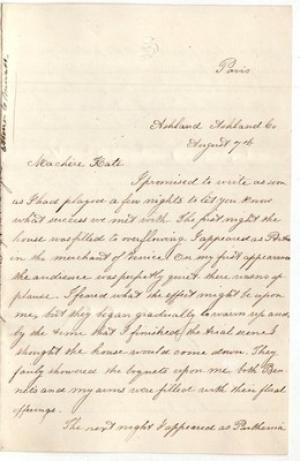 Paris
Ashland Ashland Co
August 7th
Machére Kate
I promised to write as soon
as I had played a few nights to let you know
what success we met with. The first night the
house was filled to overflowing I appeared as Portia
in the merchant of Venice. On my first appearance
the audience was perfectly quiet. there was no ap
plause. I feared what the effect might be upon
me, but they began gradually to warm up and
by the time that I finished the trial scene I
thought the house would come down. They
fairly showered the boquets upon me both
and my arms were filled with their floral
offerings.
The next night I appeared as Parthenia